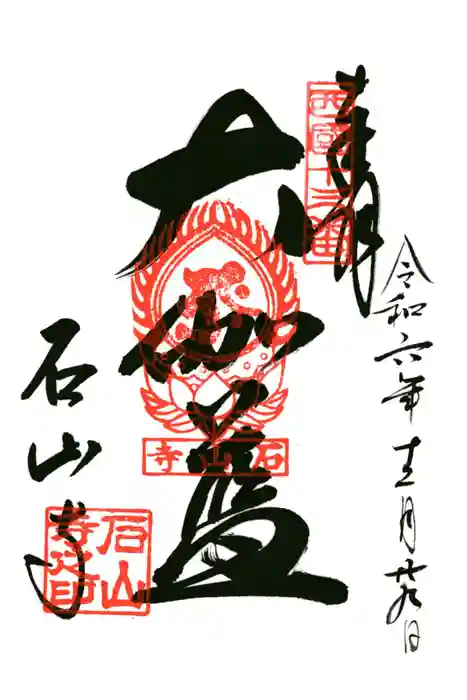 奉拝
西國十三番
令和六年十二月廿九日
大伽藍
石山寺
石山寺
石山
寺之印